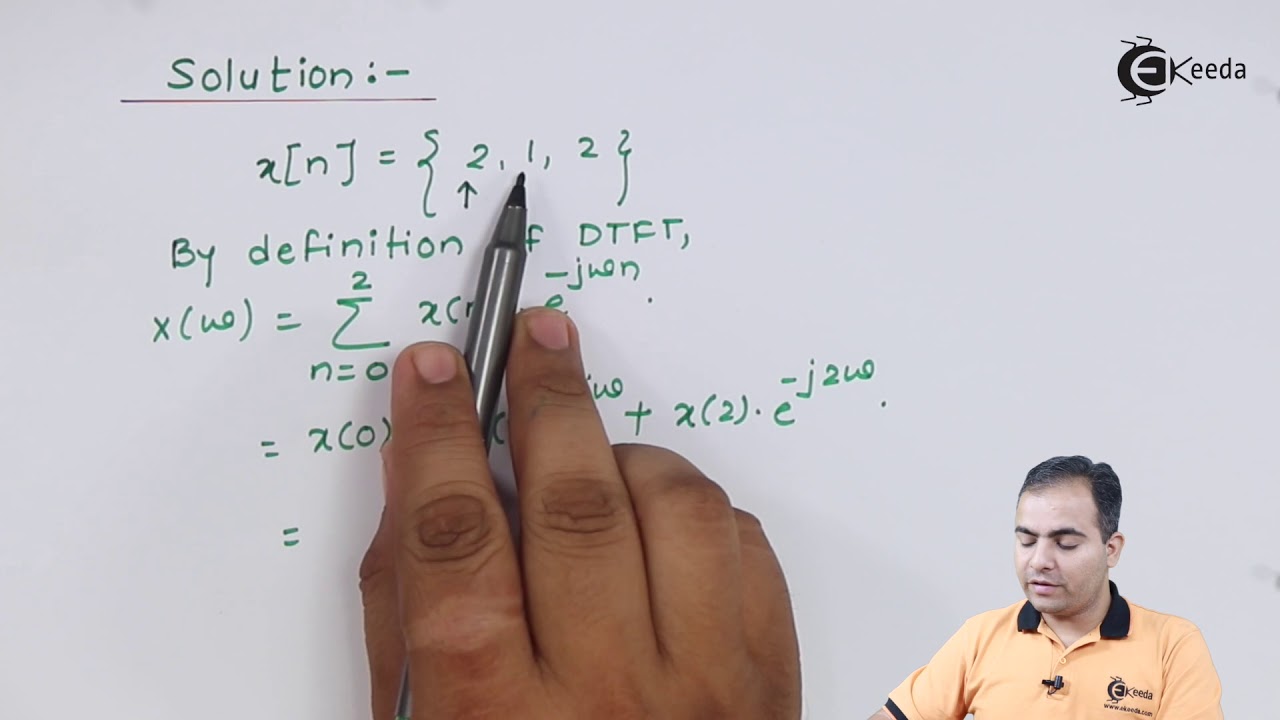 Solution :-
x[n] = { 2, 1, 2 }
↑
By definition of DTFT,
X(ω) = Σ x(n e^{-jωn} .
2
n=0
= x(0) ω + x(2) . e^{-j2ω} .
=
EKeeda
EKeeda
www.ekeeda.com